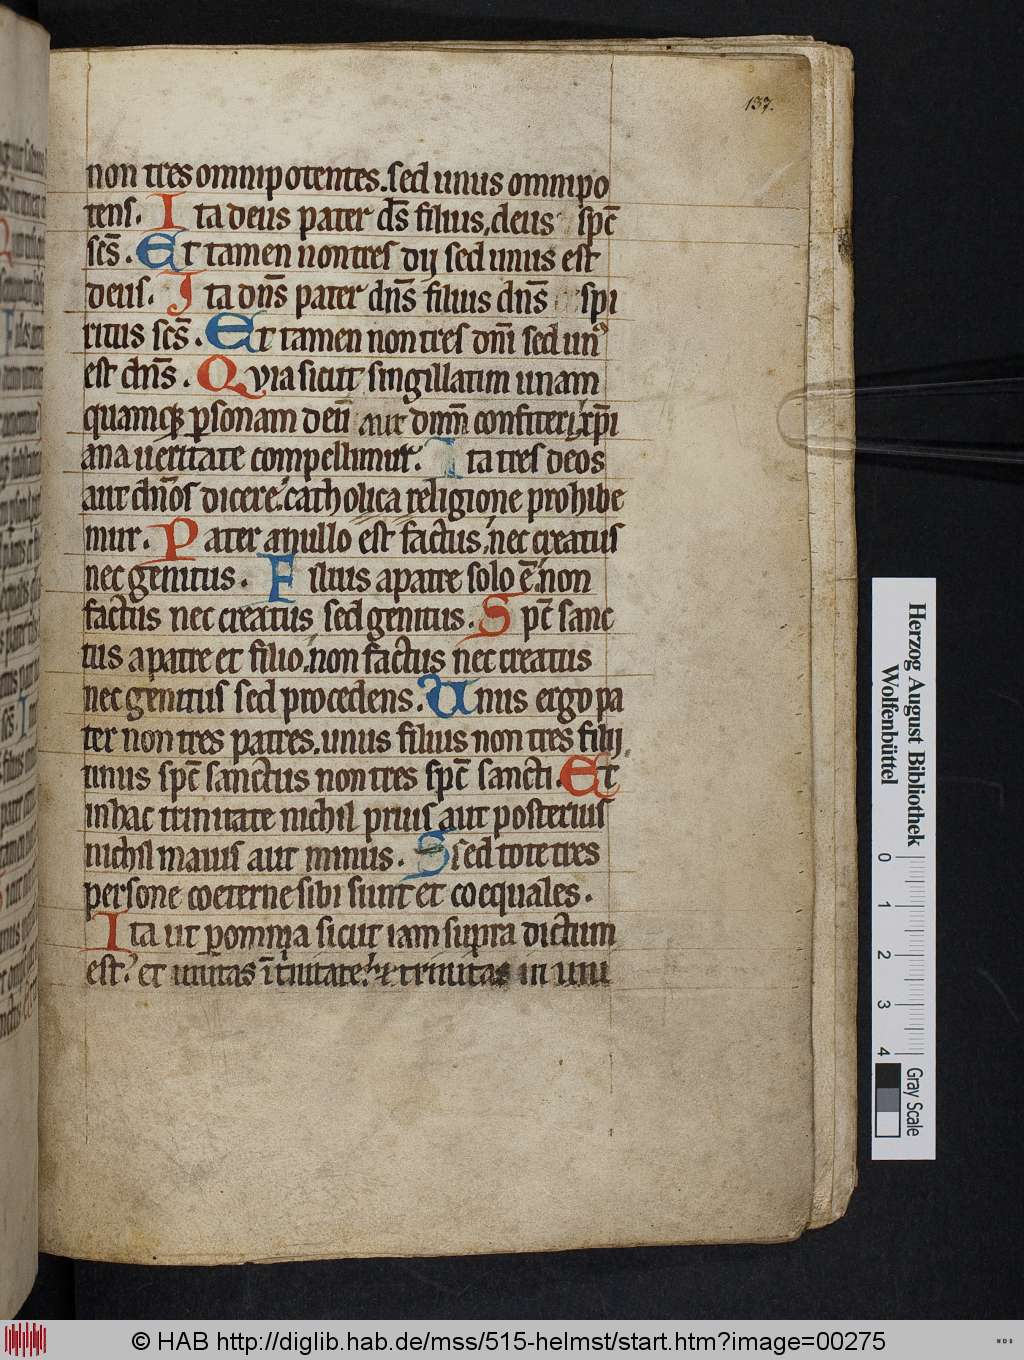 137.
non tres omnipotentes. sed unus omnipo
tens. Ita deus pater ds̄ filius, deus spc̄
scs̄. Et tamen non tres dij sed unus est
deus. Ita dn̄s pater dn̄s filius dn̄s spi
ritus scs̄. Et tamen non tres dn̄i sed unꝰ
est dn̄s. Quia sicut singillatim unam
quamqꝫ ꝑsonam deū aut dn̄m confiteri xp̄i
ana ueritate compellimur. Ita tres deos
aut dn̄os dicere catholica religione prohibe
mur. Pater a nullo est factus, nec creatus
nec genitus. Filius a patre solo ē non
factus nec creatus sed genitus. Spc̄ sanc
tus a patre et filio. non factus nec creatus
nec genitus sed procedens. Unus ergo pa
ter non tres patres. unus filius non tres filij,
unus spc̄ sanctus non tres spc̄ sancti. Et
in hac trinitate nichil prius aut posterius
nichil maius aut minus. Ssed tote tres
persone coeterne sibi sunt et coequales.
Ita ut ꝑ omnia sicut iam supra dictum
est. et unitas ī t̄nitate. et trinitas in uni
Herzog August Bibliothek
Wolfenbüttel
0 1 2 3 4
Gray Scale
© HAB http://diglib.hab.de/mss/515-helmst/start.htm?image=00275